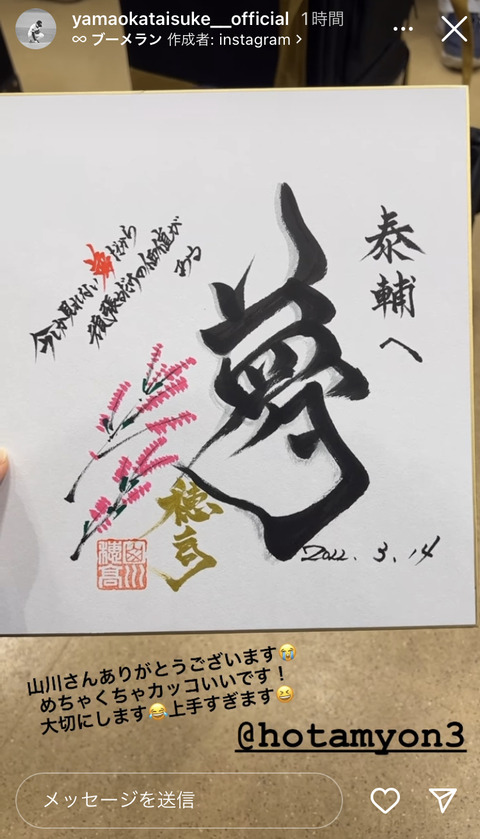 yamaokataisuke__official 1時間
∞ ブーメラン 作成者: instagram >
泰輔へ
夢
今しか見れない夢だから
頑張るだけの価値が
ある
穂高
2022.3.14
山川さんありがとうございます😭
めちゃくちゃカッコいいです！
大切にします😂上手すぎます😆
@hotamyon3
メッセージを送信